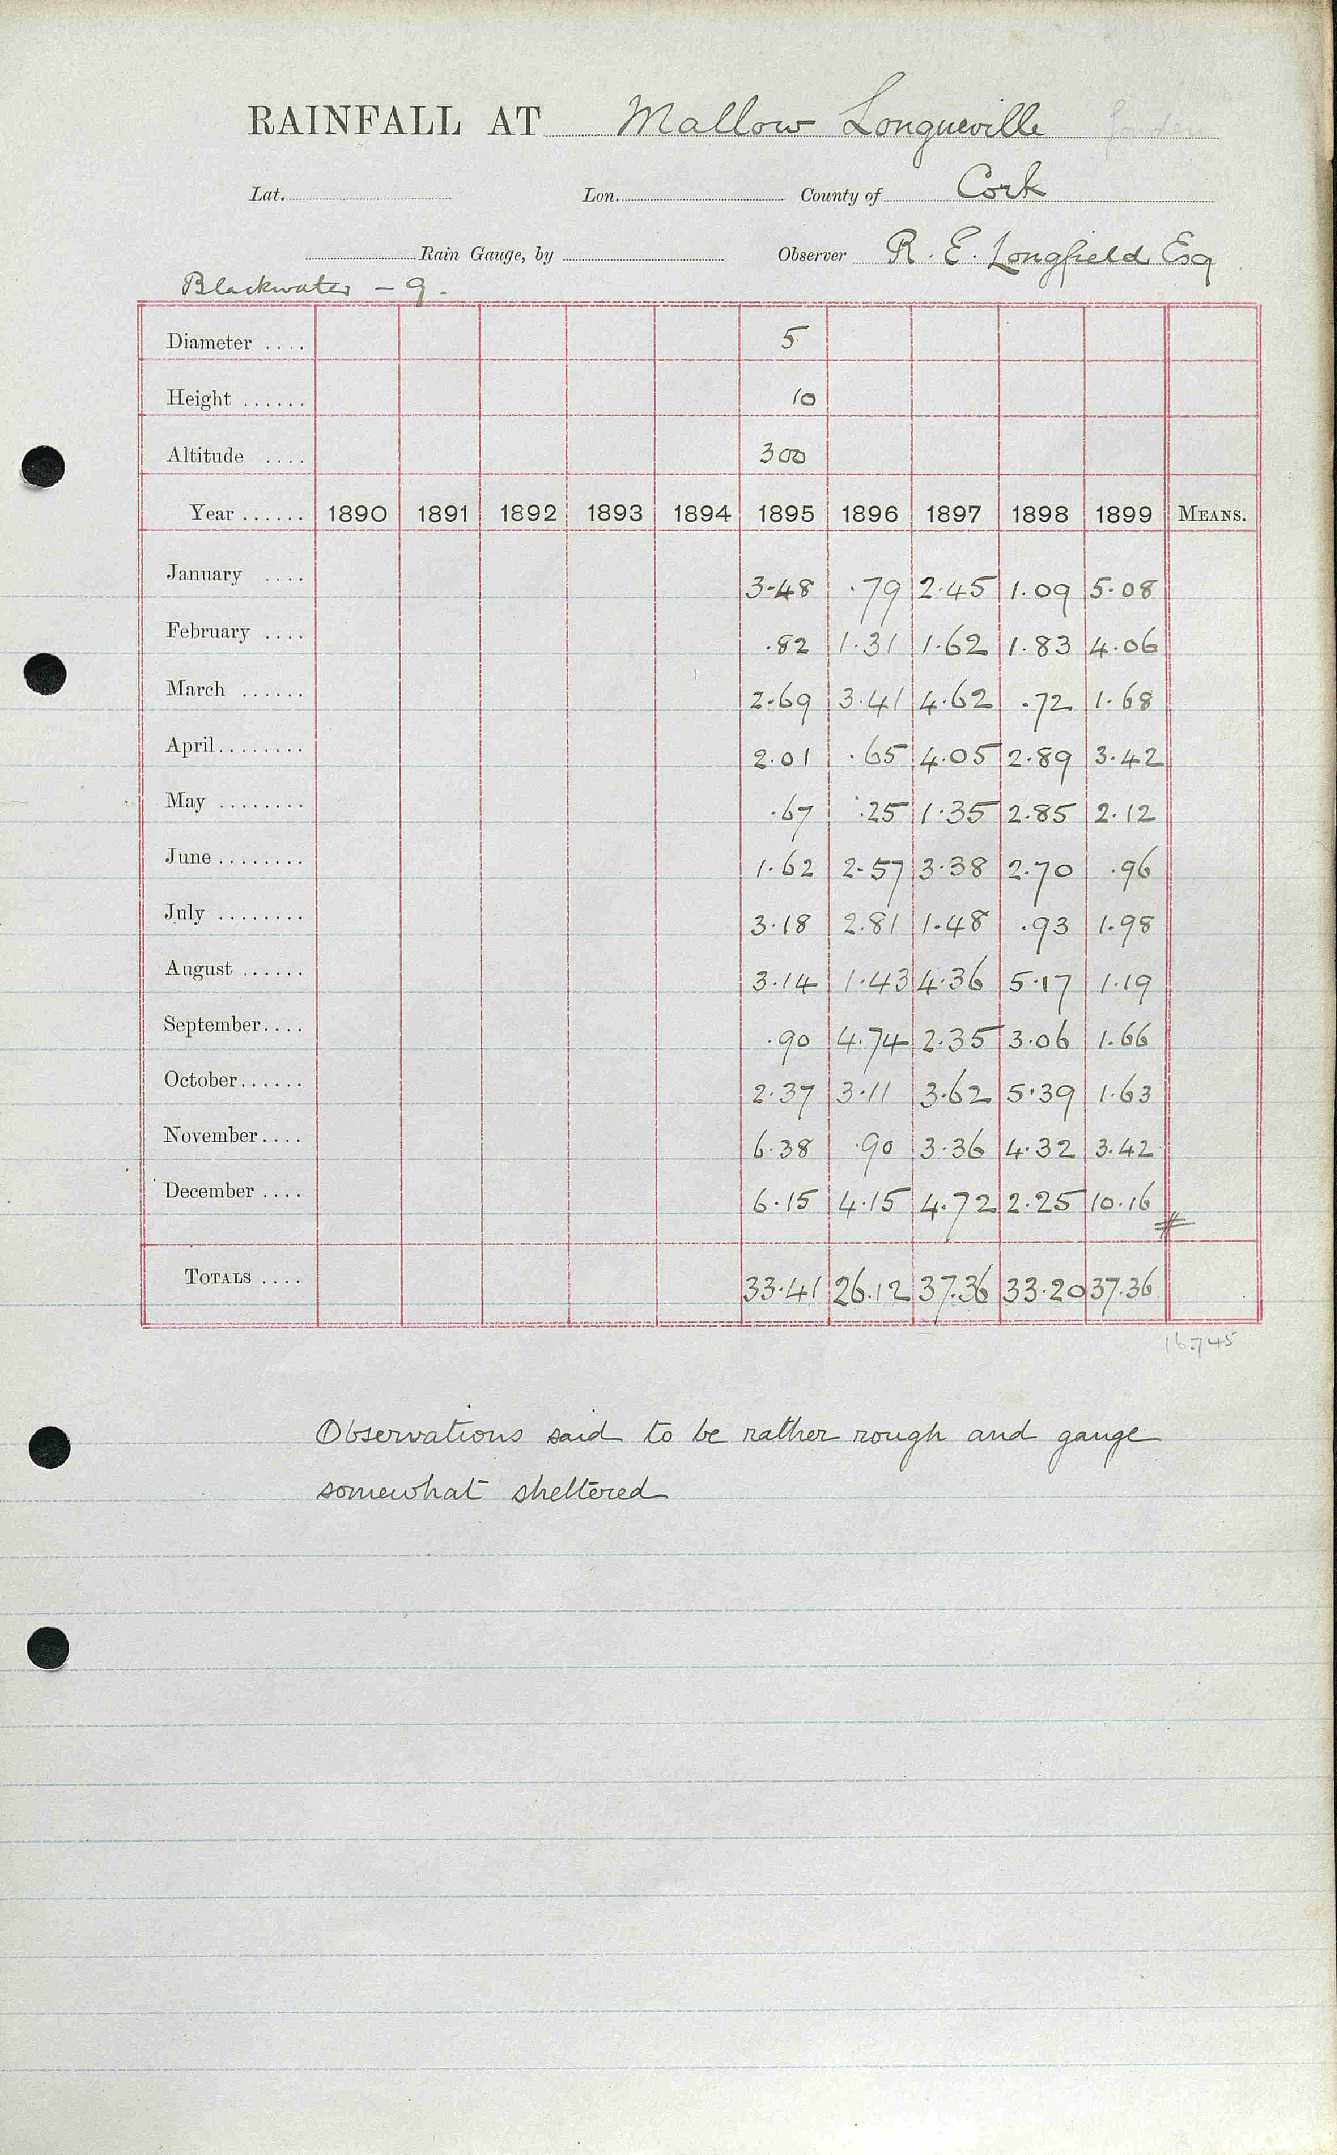 RAINFALL AT Mallow Longueville
Lat. Lon. County of Cork
Rain Gauge, by Observer R. E. Longfield Esq
Blackwater – 9.
Diameter .... 5
Height ...... 10
Altitude .... 300
Year ...... 1890 1891 1892 1893 1894 1895 1896 1897 1898 1899 MEANS.
January .... 3.48 .79 2.45 1.09 5.08
February .... .82 1.31 1.62 1.83 4.06
March ...... 2.69 3.41 4.62 .72 1.68
April ........ 2.01 .65 4.05 2.89 3.42
May ........ .67 .25 1.35 2.85 2.12
June ........ 1.62 2.57 3.38 2.70 .96
July ........ 3.18 2.81 1.48 .93 1.98
August ...... 3.14 1.43 4.36 5.17 1.19
September .... .90 4.74 2.35 3.06 1.66
October ...... 2.37 3.11 3.62 5.39 1.63
November .... 6.38 .90 3.36 4.32 3.42
December .... 6.15 4.15 4.72 2.25 10.16
TOTALS .... 33.41 26.12 37.36 33.20 37.36
16.745
Observations said to be rather rough and gauge
somewhat sheltered